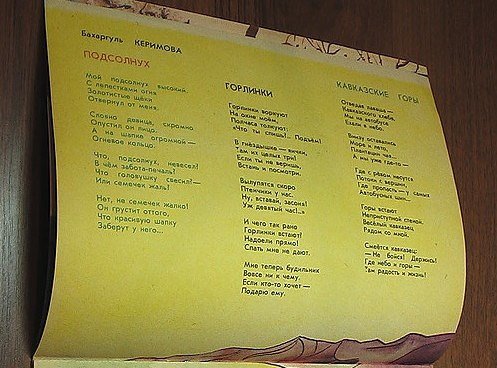 Бахаргуль КЕРИМОВА
ПОДСОЛНУХ
Мой подсолнух высокий
С лепестками огня
Золотистые щёки
Отвернул от меня.
Словно девица, скромно
Опустил он лицо.
А на шапке огромной —
Огневое кольцо.
Что, подсолнух, невесел!
В чём забота-печаль!
Что головушку свесил!—
Или семечек жаль!
Нет, не семечек жалко!
Он грустит оттого,
Что красивую шапку
Заберут у него...
ГОРЛИНКИ
Горлинки воркуют
На окне моём,
Полчаса толкуют:
«Что ты спишь!.. Подъём!
В гнёздышко — взгляни,
Там их целых три!
Если ты не веришь,
Встань и посмотри.
Вылупятся скоро
Птенчики у нас.
Ну, вставай, засоня!
Уж девятый час!..»
И чего так рано
Горлинки встают!
Надоели прямо!
Спать мне не дают.
Мне теперь будильник
Вовсе ни к чему.
Если кто-то хочет —
Подарю ему.
КАВКАЗСКИЕ ГОРЫ
Отведав лаваша —
Кавказского хлеба,
Мы на автобусе
Ехали в небо.
Внизу оставались
Море и лето,
Плантации чая —
А мы уже где-то —
Где с рёвом несутся
Потоки с вершин,
Где пропасть — у самых
Автобусных шин...
Горы встают
Неприступной стеной.
Весёлый кавказец
Рядом со мной.
Смеётся кавказец:
— Не бойся! Держись!
Где небо и горы —
Там радость и жизнь!